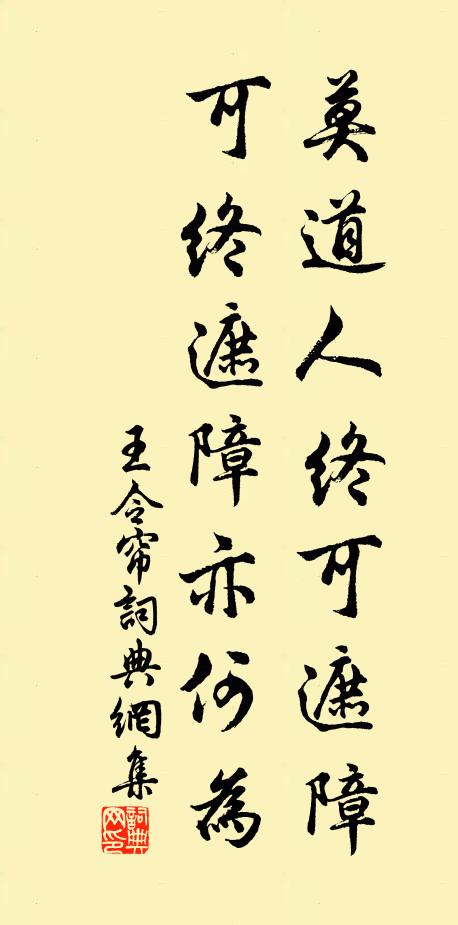 莫道人終可遮障
可終遮障亦何為
王令帘詞典網集
詞典网印